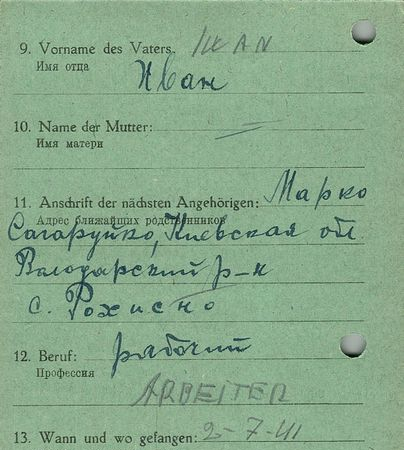 9. Vorname des Vaters: IWAN
Имя отца
Иван
10. Name der Mutter: —
Имя матери
11. Anschrift der nächsten Angehörigen: Марко
Адрес ближайших родственников
Сагаруйко, Киевская обл.
Володарский р-н
с. Рохисно
12. Beruf: рабочий
Профессия
ARBEITER
13. Wann und wo gefangen: 2-7-41